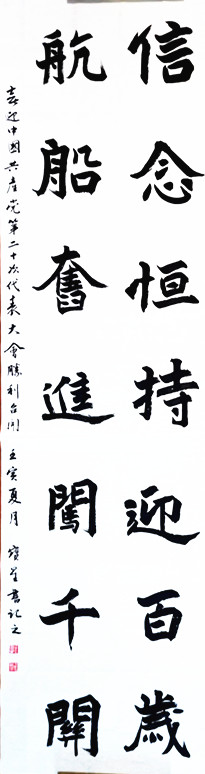 信念恒持迎百歲
航船奮進闖千關
喜迎中國共產党第二十次代表大會勝利召開 壬寅夏月 書記之